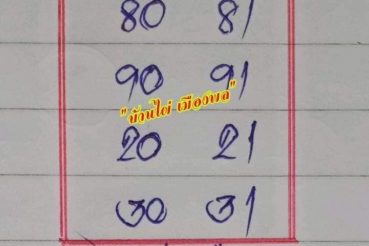 80 81
90 91
"บ้านไผ่ เมืองพล"
20 21
30 31